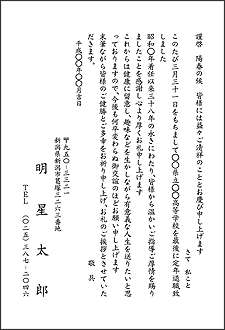 謹啓　陽春の候　皆様には益々ご清祥のこととお慶び申し上げます
さて　私こと
このたび三月三十一日をもちまして〇〇県立〇〇高等学校を最後に定年退職致
しました
昭和〇年着任以来三十八年の永きにわたり、皆様から温かいご指導ご厚情を賜り
ましたことを感謝し心より厚くお礼申し上げます
これからは健康に留意し、趣味などを生かしながら有意義な人生を送りたいと思
っておりますので、今後も何卒変わらぬ御交誼のほどお願い申し上げます
末筆ながら皆様のご健勝とご多幸をお祈り申し上げ、お礼のご挨拶とさせていた
だきます。
敬　具
平成〇〇年〇〇月吉日
〒九五〇-三三二一
新潟県新潟市葛塚一二六三番地
明　星　太　郎
TEL　(〇二五)三八七-二〇四六